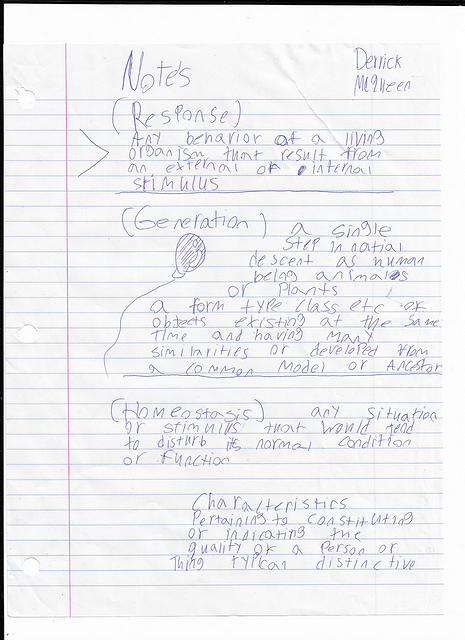 Notes
Derrick
McQueen
(Response)
Any behavior of a living
organism that result from
an external or internal
stimulus
(Generation) a single
Step in natial
descent as human
being animals
or Plants
a form type class etc of
objects existing at the same
time and having many
similarities or developed from
a common Model or Ancestor
(Homeostasis) any situation
or stimulus that would tend
to disturb its normal condition
or function
Characteristics
Pertaining to constituting
or indicating the
quality of a Person or
Thing typcan distinctive